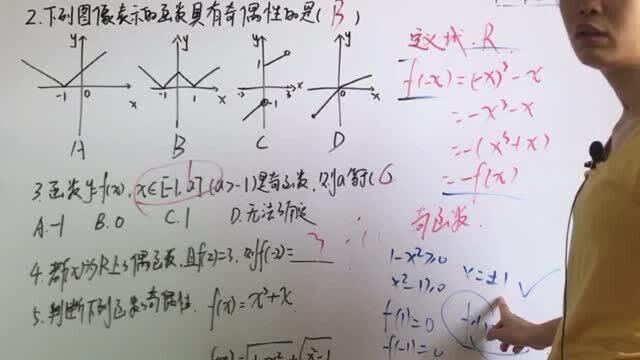 2.下列图像表示的函数具有奇偶性的是( B )
y y y y
-1 0 x -1 0 1 x -1 3 x 0 x
A B C D
3.函数y=f(x), x∈[-1,a] (a>-1)是奇函数,则a等于( C
A.-1 B.0 C.1 D.无法确定
4.若f(x)为R上的偶函数,且f(2)=3,则f(-2)= 3
5.判断下列函数的奇偶性. f(x)=x³+x.
定义域.R
f(-x)=(-x)³-x
=-x³-x
=-(x³+x)
=-f(x)
奇函数.
1-x²≥0
x²-1≥0
x=±1
f(1)=0
f(-1)=0